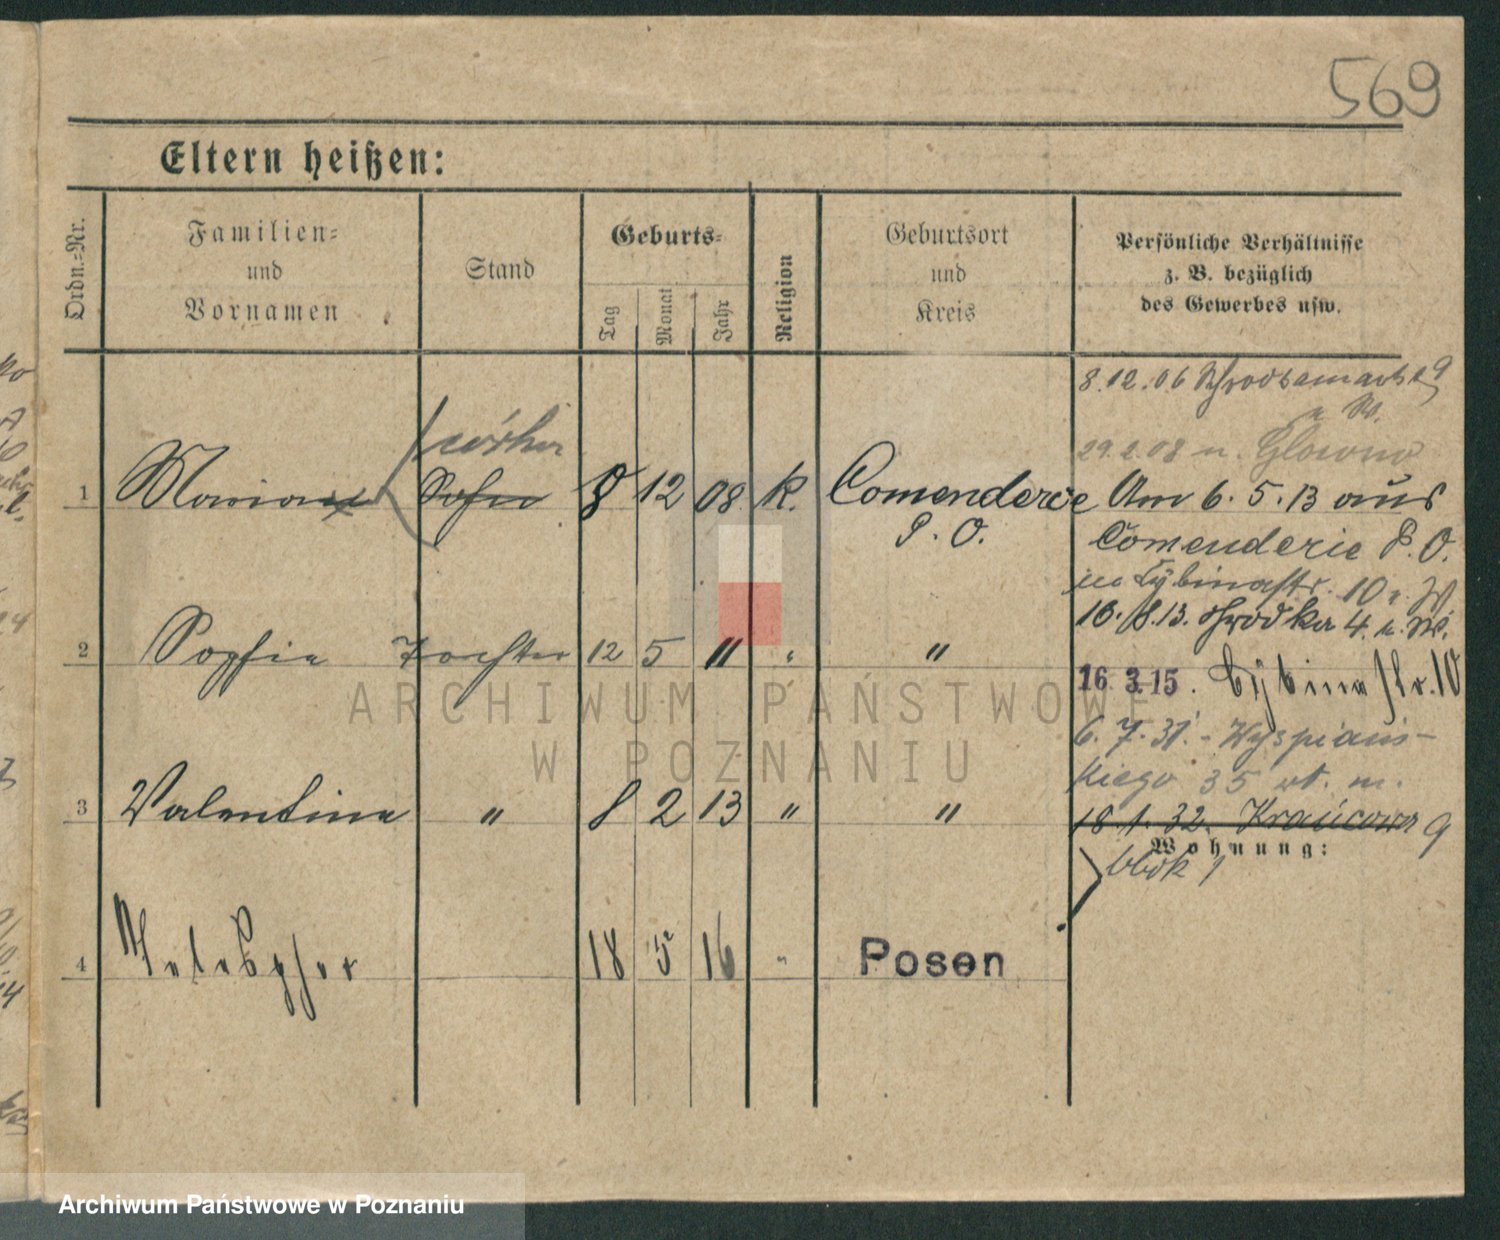 569
Eltern heißen:
Ordn.-Nr.
Familien-
und
Vornamen
Stand
Geburts-
Tag
Monat
Jahr
Religion
Geburtsort
und
Kreis
Persönliche Verhältnisse
z. B. bezüglich
des Gewerbes usw.
8.12.06
29.2.08 Glowno
1 Marianne córka Sohn 8 12 08 k. Comenderie Am 6.5.13 aus
P. O. Comenderie P. O.
Cybinastr. 10 n. W
16.8.13. Schrodka 4. n. W.
2 Sophie Tochter 12 5 " " "
16.3.15. Cybinastr. 10
6.7.31. - Wyspiańs-
kiego 35 wt. m.
3 Valentine " 8 2 13 " "
18.1.32. Krańcowa 9
Wohnung:
blok 1
4 Telesphor 18 5 16 " Posen
ARCHIWUM PAŃSTWOWE
W POZNANIU
Archiwum Państwowe w Poznaniu